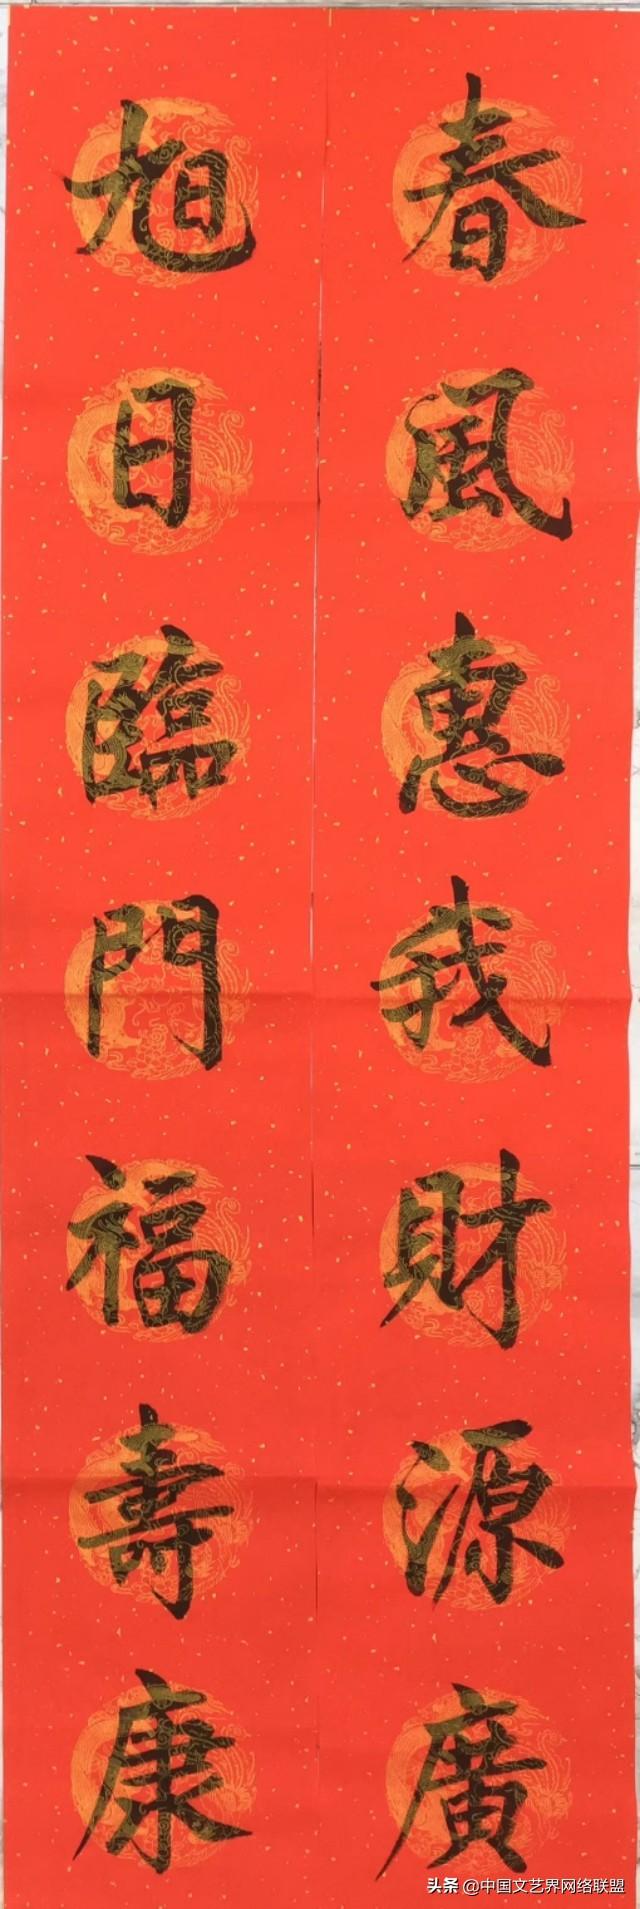 春風惠我財源廣
旭日臨門福壽康
头条 @中国文艺界网络联盟